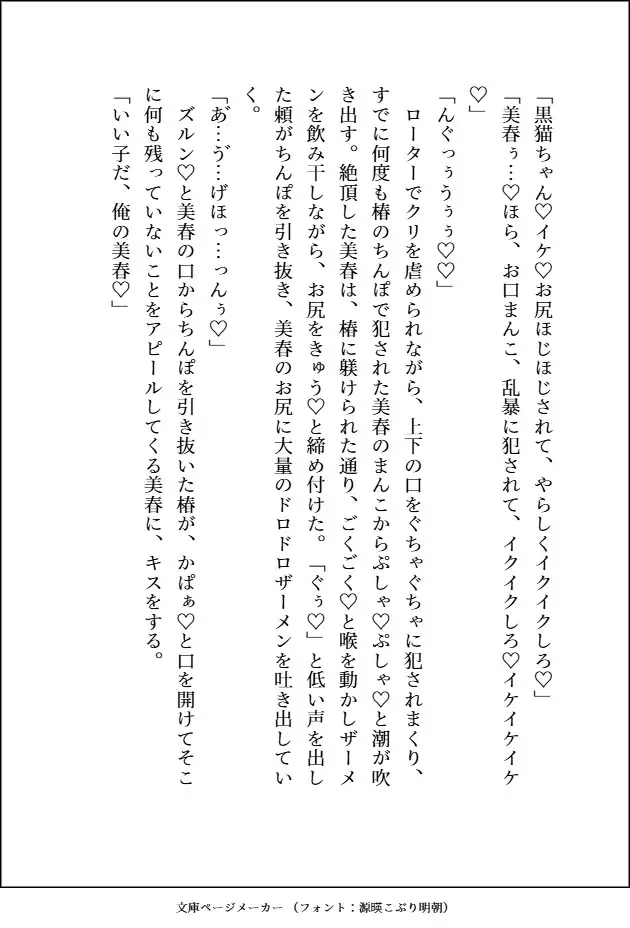 「黒猫ちゃん♡イケ♡お尻ほじほじされて、やらしくイクイクしろ♡」
「美春ぅ…♡ほら、お口まんこ、乱暴に犯されて、イクイクしろ♡イケイケイケ
♡」
「んぐっぅうぅぅ♡♡」
　ローターでクリを虐められながら、上下の口をぐちゃぐちゃに犯されまくり、
すでに何度も椿のちんぽで犯された美春のまんこからぷしゃ♡ぷしゃ♡と潮が吹
き出す。絶頂した美春は、椿に躾けられた通り、ごくごく♡と喉を動かしザーメ
ンを飲み干しながら、お尻をきゅう♡と締め付けた。「ぐぅ♡」と低い声を出し
た頼がちんぽを引き抜き、美春のお尻に大量のドロドロザーメンを吐き出してい
く。
「あ゙…ゔ…げほっ…っんぅ♡」
　ズルン♡と美春の口からちんぽを引き抜いた椿が、かぱぁ♡と口を開けてそこ
に何も残っていないことをアピールしてくる美春に、キスをする。
「いい子だ、俺の美春♡」
文庫ページメーカー（フォント：源暎こぶり明朝）